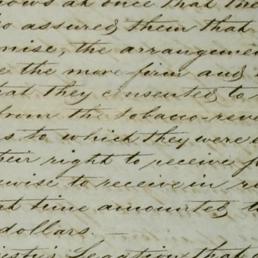 at once that
assured them that
mise, the arrangemen
the more firm and
at they consented to
from the tobacco-reve
s to which they were e
heir right to receive
wise to receive in
at time amounted, t
dollars.
esty's Legation that